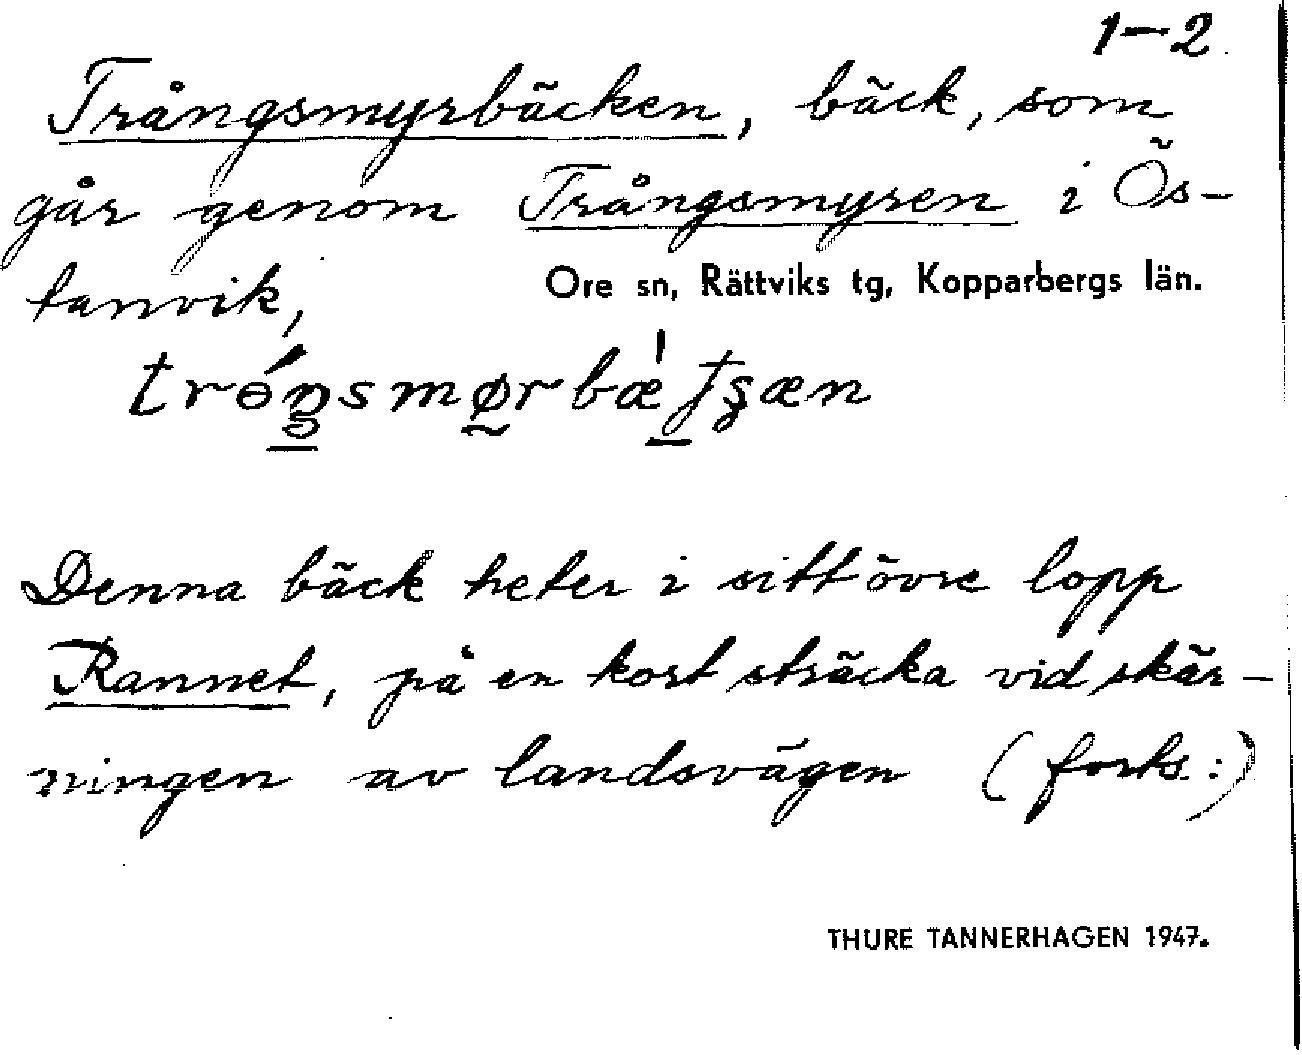 1–2
Trångsmyrbäcken, bäck, som
går genom Trångsmyren i Ös-
tanvik,
Ore sn, Rättviks tg, Kopparbergs län.
Denna bäck heter i sitt övre lopp
Rannet, på en kort sträcka vid skär-
ningen av landsvägen (forts:)
THURE TANNERHAGEN 1947.